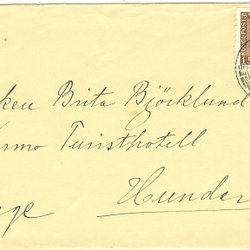 ken Brita Björklund
rmo Turisthotell
ge Hunder